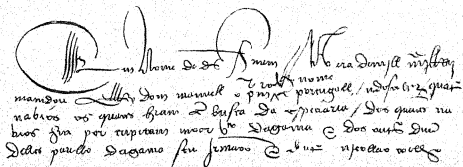 Em Nome de ds Amem Na era de mill
mandou ellRey dom manuell o primro desto nome em portugall a descobrir quatro
navios os quaes hiam em busca da especiaria / dos quaes na
vios hia por capitam moor vco dagama e dos outros duu
delles paullo dagama seu Irmaoo e doutro nicollao coelho